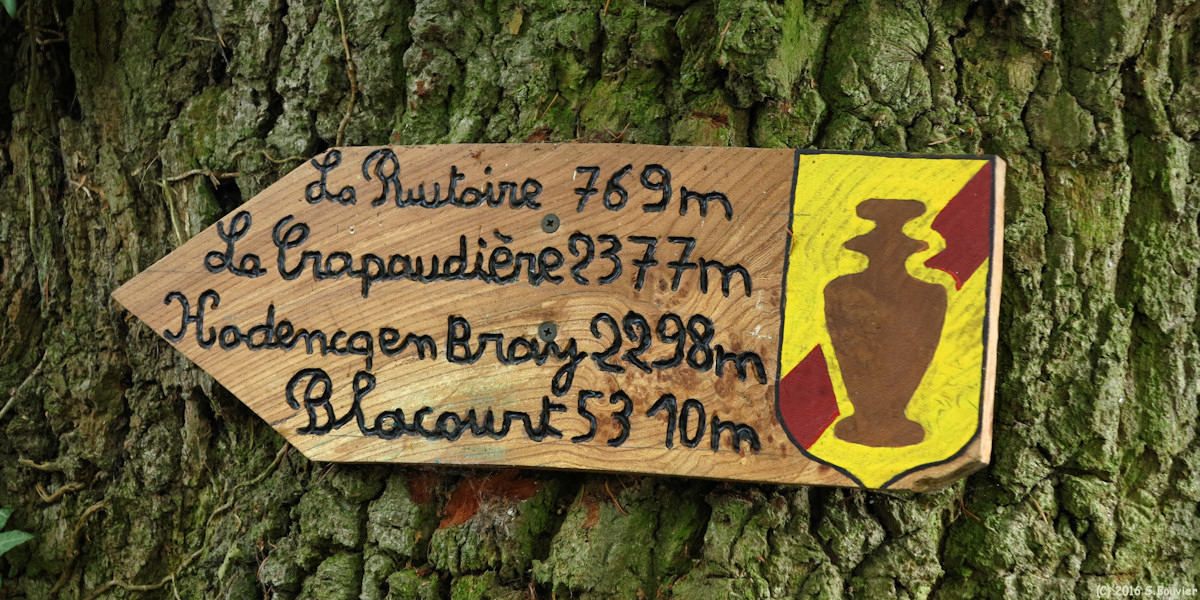 La Rustoire 769m
La Crapaudière 2377m
Hodencq en Bray 2298m
Blacourt 5310m
(C) 2016 S.Bouvier